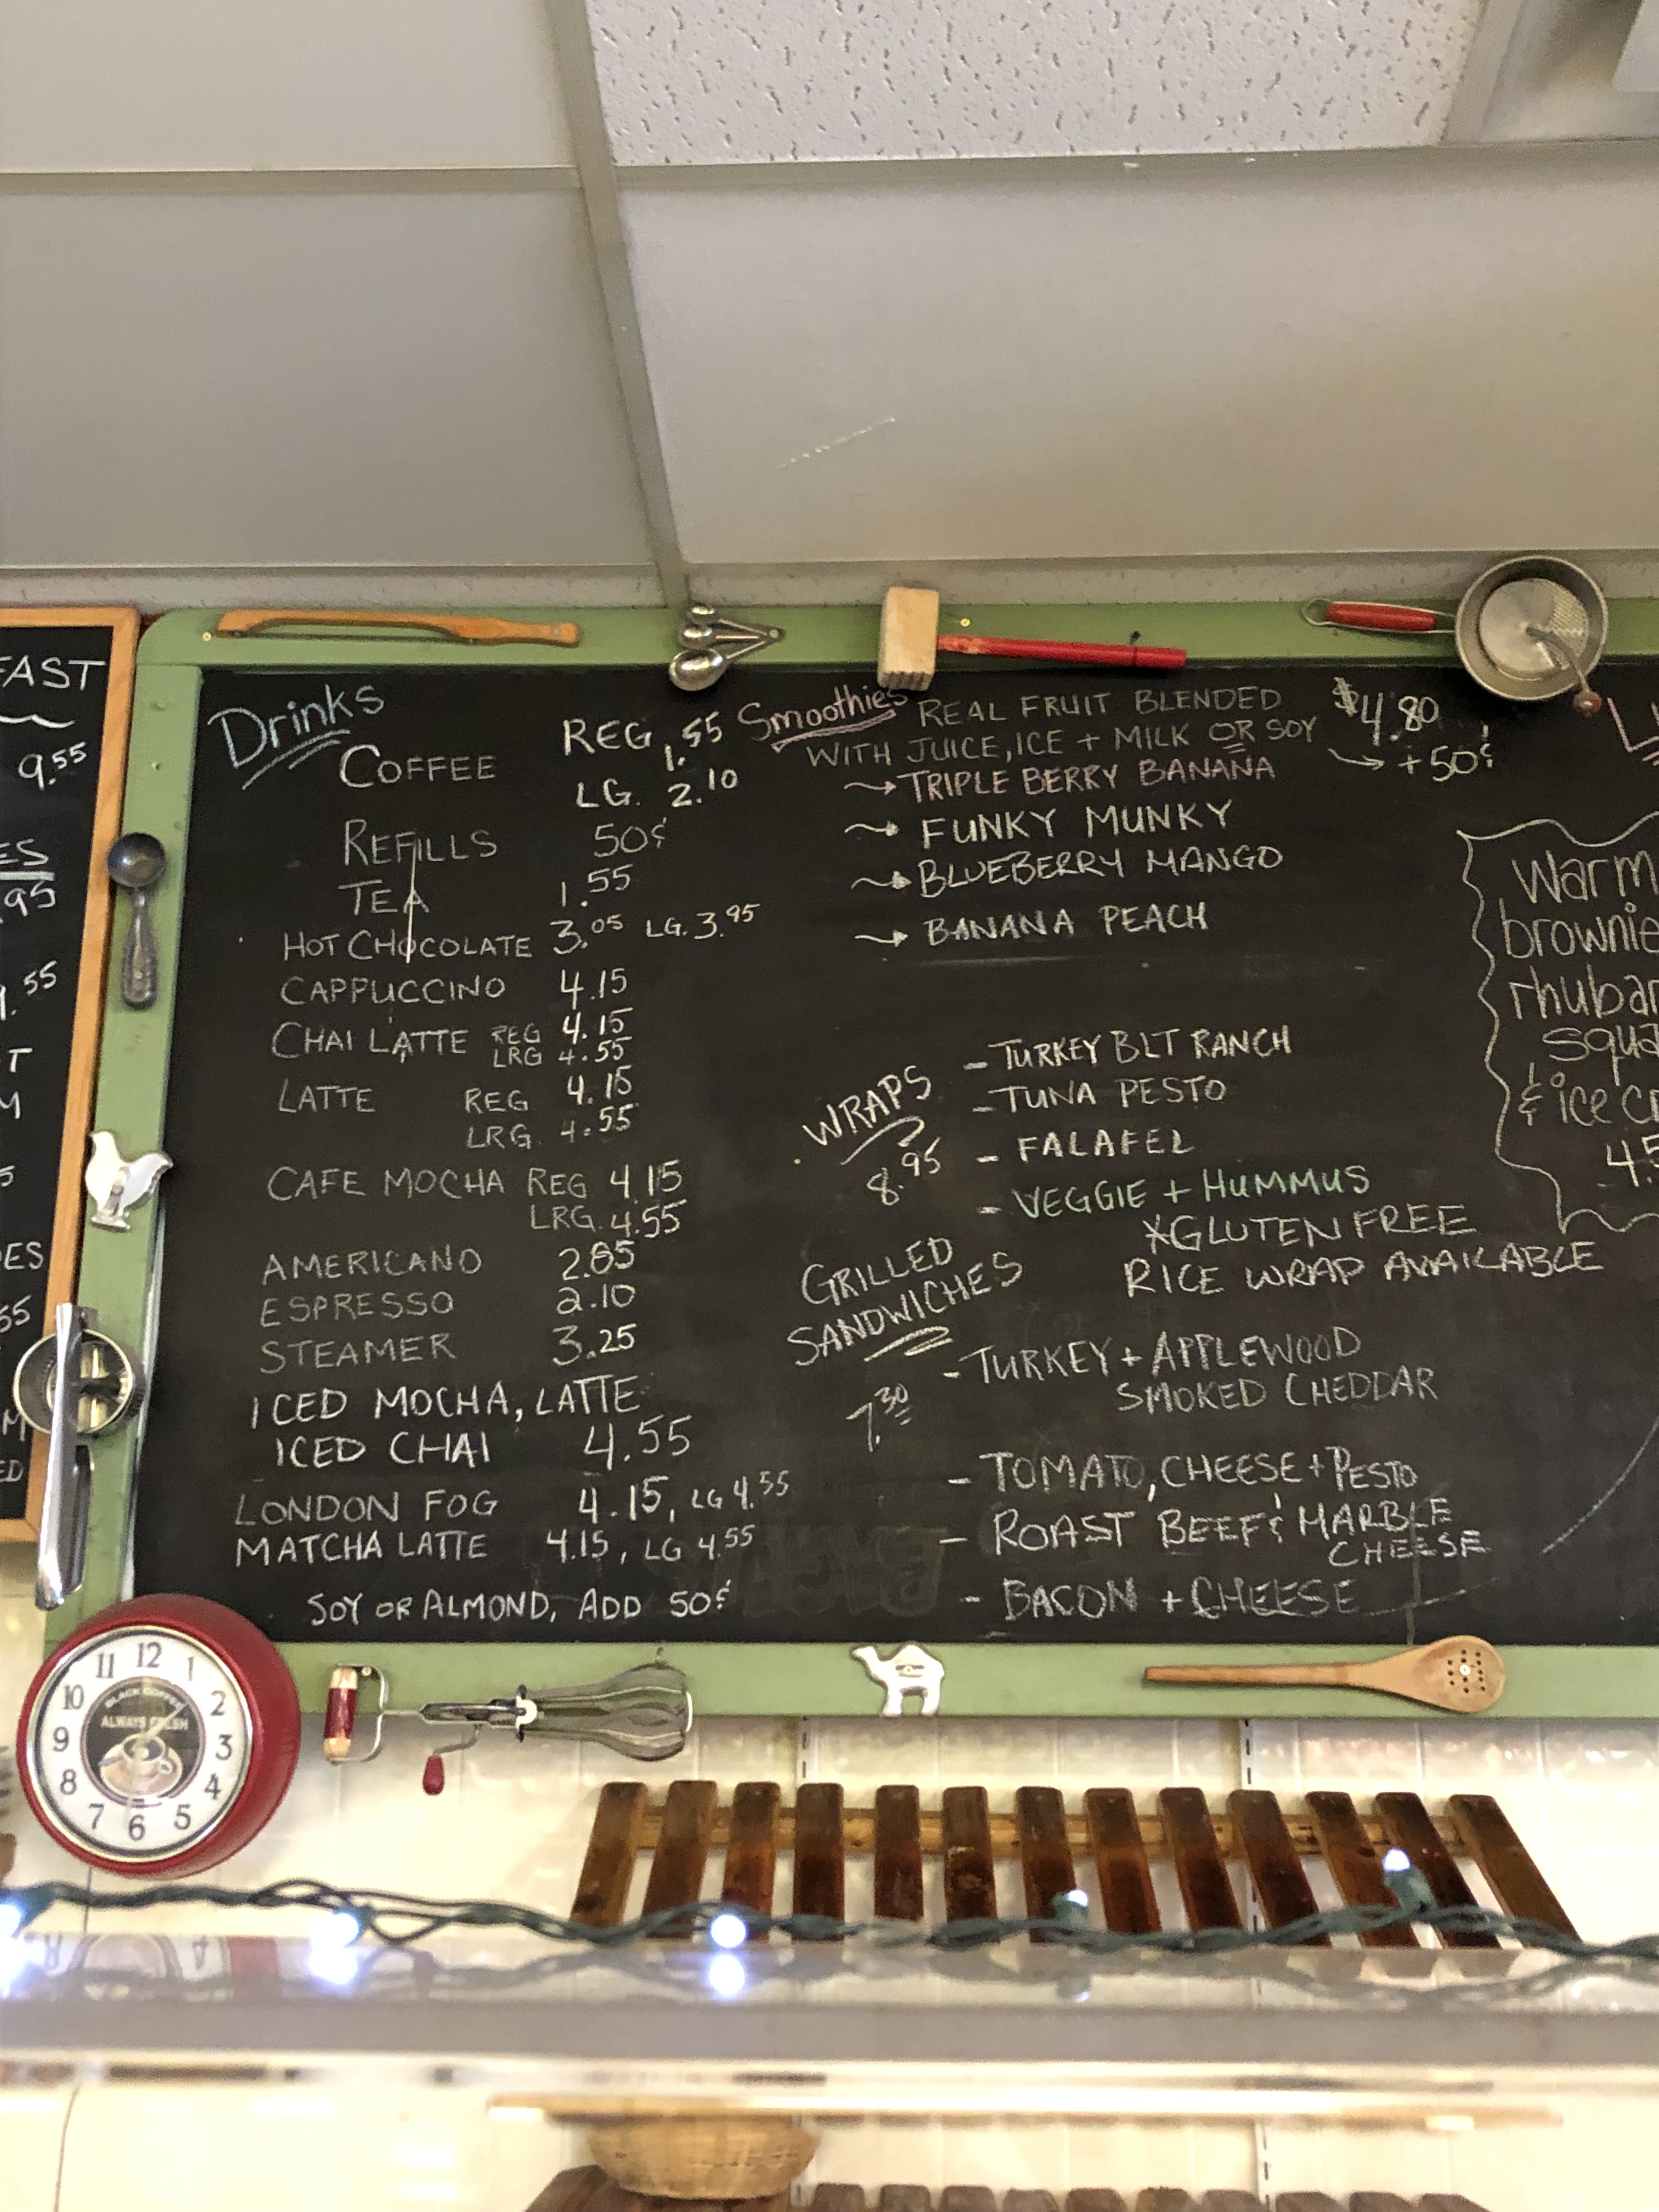 FAST
9.55
ES
.95
.55
T
M
5
DES
55
M
ED
Drinks
COFFEE REG 1.55
LG. 2.10
REFILLS 50¢
TEA 1.55
HOT CHOCOLATE 3.05 LG. 3.95
CAPPUCCINO 4.15
CHAI LATTE REG 4.15
LRG 4.55
LATTE REG 4.15
LRG. 4.55
CAFE MOCHA REG 4.15
LRG. 4.55
AMERICANO 2.85
ESPRESSO 2.10
STEAMER 3.25
ICED MOCHA, LATTE
ICED CHAI 4.55
LONDON FOG 4.15, LG 4.55
MATCHA LATTE 4.15, LG 4.55
SOY OR ALMOND, ADD 50¢
Smoothies REAL FRUIT BLENDED $4.80
WITH JUICE, ICE + MILK OR SOY → +50¢
→ TRIPLE BERRY BANANA
→ FUNKY MUNKY
→ BLUEBERRY MANGO
→ BANANA PEACH
WRAPS
8.95
- TURKEY BLT RANCH
- TUNA PESTO
- FALAFEL
- VEGGIE + HUMMUS
*GLUTEN FREE
RICE WRAP AVAILABLE
GRILLED
SANDWICHES
7.30
- TURKEY + APPLEWOOD
SMOKED CHEDDAR
- TOMATO, CHEESE + PESTO
- ROAST BEEF & MARBLE
CHEESE
- BACON + CHEESE
Warm
brownie
rhubar
squa
& ice cr
4.5
11 12 1
10 2
9 3
8 4
7 6 5
BLACK COFFEE
ALWAYS FRESH